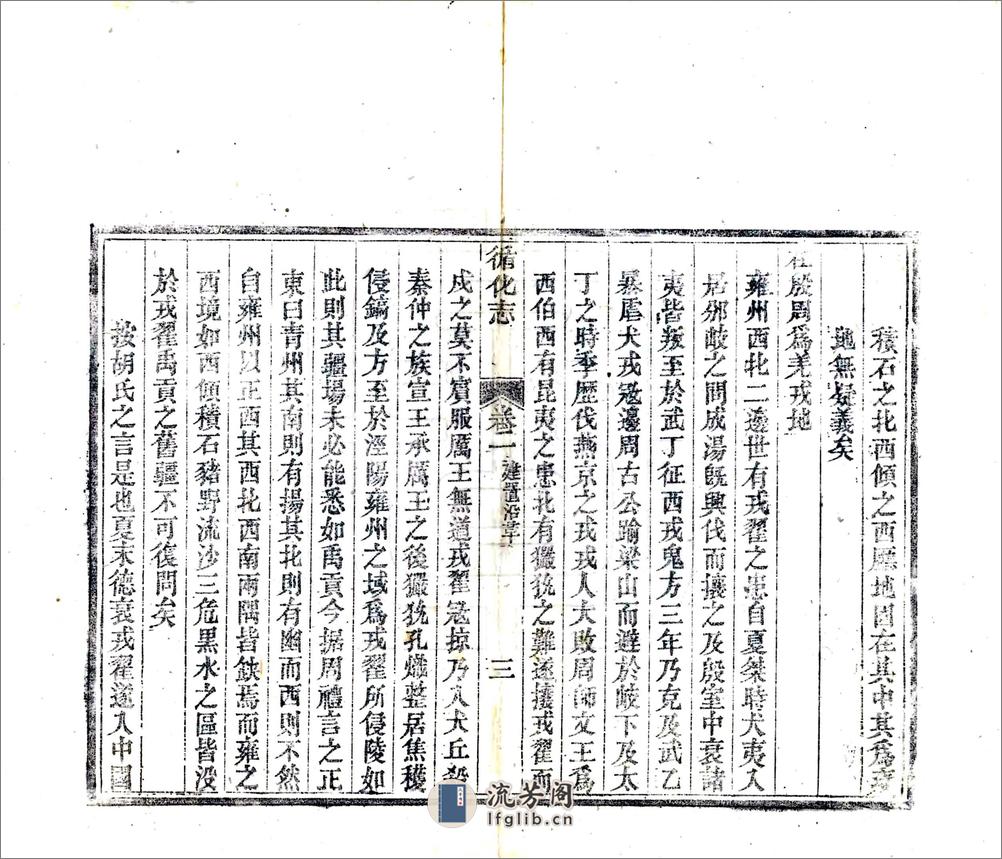 積石之北西傾之西廳地固在其中其爲雍
地無疑義矣
在殷周爲羌戎地
雍州西北二邊世有戎翟之患自夏桀時犬夷入
居邠岐之間成湯旣興伐而攘之及殷室中衰諸
夷皆叛至於武丁征西戎鬼方三年乃克及武乙
暴虐犬戎寇邊周古公踰梁山而避於岐下及太
丁之時季歷伐燕京之戎戎人大敗周師文王爲
西伯西有昆夷之患北有玁狁之難遂攘戎翟而
循化志
卷一
建置沿革
三
戍之莫不賓服厲王無道戎翟寇掠乃入犬丘殺
秦仲之族宣王承厲王之後玁狁孔熾整居焦穫
侵鎬及方至於涇陽雍州之域爲戎翟所侵陵如
此則其疆場未必能悉如禹貢今据周禮言之正
東曰青州其南則有揚其北則有幽而西則不然
自雍州以正西其西北西南兩隅皆缺焉而雍之
西境如西傾積石豬野流沙三危黑水之區皆沒
於戎翟禹貢之舊疆不可復問矣
按胡氏之言是也夏末德衰戎翟遂入中國
流芳阁
lfglib.cn